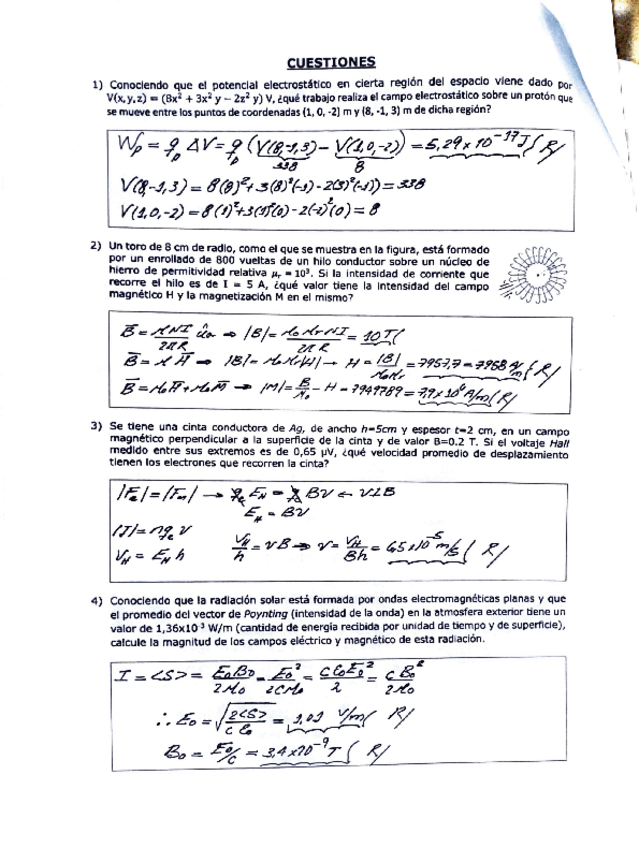 CUESTIONES
1) Conociendo que el potencial electrostático en cierta región del espacio viene dado por
V(x,y,z) = (8x² + 3x² y − 2z² y) V, ¿qué trabajo realiza el campo electrostático sobre un protón que
se mueve entre los puntos de coordenadas (1, 0, -2) m y (8, -1, 3) m de dicha región?
Wp = qp ΔV = qp (V(8,-1,3) − V(1,0,-2)) = 5,29 x 10⁻¹⁷ J ( R/
338 8
V(8,-1,3) = 8(8)² + 3(8)²(-1) - 2(3)²(-1) = 338
V(1,0,-2) = 8(1)² + 3(1)²(0) - 2(-2)²(0) = 8
2) Un toro de 8 cm de radio, como el que se muestra en la figura, está formado
por un enrollado de 800 vueltas de un hilo conductor sobre un núcleo de
hierro de permitividad relativa μr = 10³. Si la intensidad de corriente que
recorre el hilo es de I = 5 A, ¿qué valor tiene la intensidad del campo
magnético H y la magnetización M en el mismo?
B = μNI/2πR ûa ⇒ |B| = μoμrNI/2πR = 10T (
B = μH ⇒ |B| = μoμr|H| → H = |B|/μoμr = 7957,7 = 7958 A/m ( R/
B = μoH + μoM ⇒ |M| = B/μo − H = 7949789 = 7,9 x 10⁶ A/m ( R/
3) Se tiene una cinta conductora de Ag, de ancho h=5cm y espesor t=2 cm, en un campo
magnético perpendicular a la superficie de la cinta y de valor B=0.2 T. Si el voltaje Hall
medido entre sus extremos es de 0,65 μV, ¿qué velocidad promedio de desplazamiento
tienen los electrones que recorren la cinta?
|Fe| = |Fm| → qe EH = q BV ← V⊥B
EH = BV
|J| = nqe v
VH = EH h VH/h = vB ⇒ v = VH/Bh = 6,5x10⁻⁵ m/s ( R/
4) Conociendo que la radiación solar está formada por ondas electromagnéticas planas y que
el promedio del vector de Poynting (intensidad de la onda) en la atmosfera exterior tiene un
valor de 1,36x10⁻³ W/m (cantidad de energía recibida por unidad de tiempo y de superficie),
calcule la magnitud de los campos eléctrico y magnético de esta radiación.
I = <S> = EoBo/2μo = Eo²/2cμo = cεoEo²/2 = cBo²/2μo
∴ Eo = √(2<S>/cεo) = 1,01 V/m ( R/
Bo = Eo/c = 3,4x10⁻⁹ T ( R/